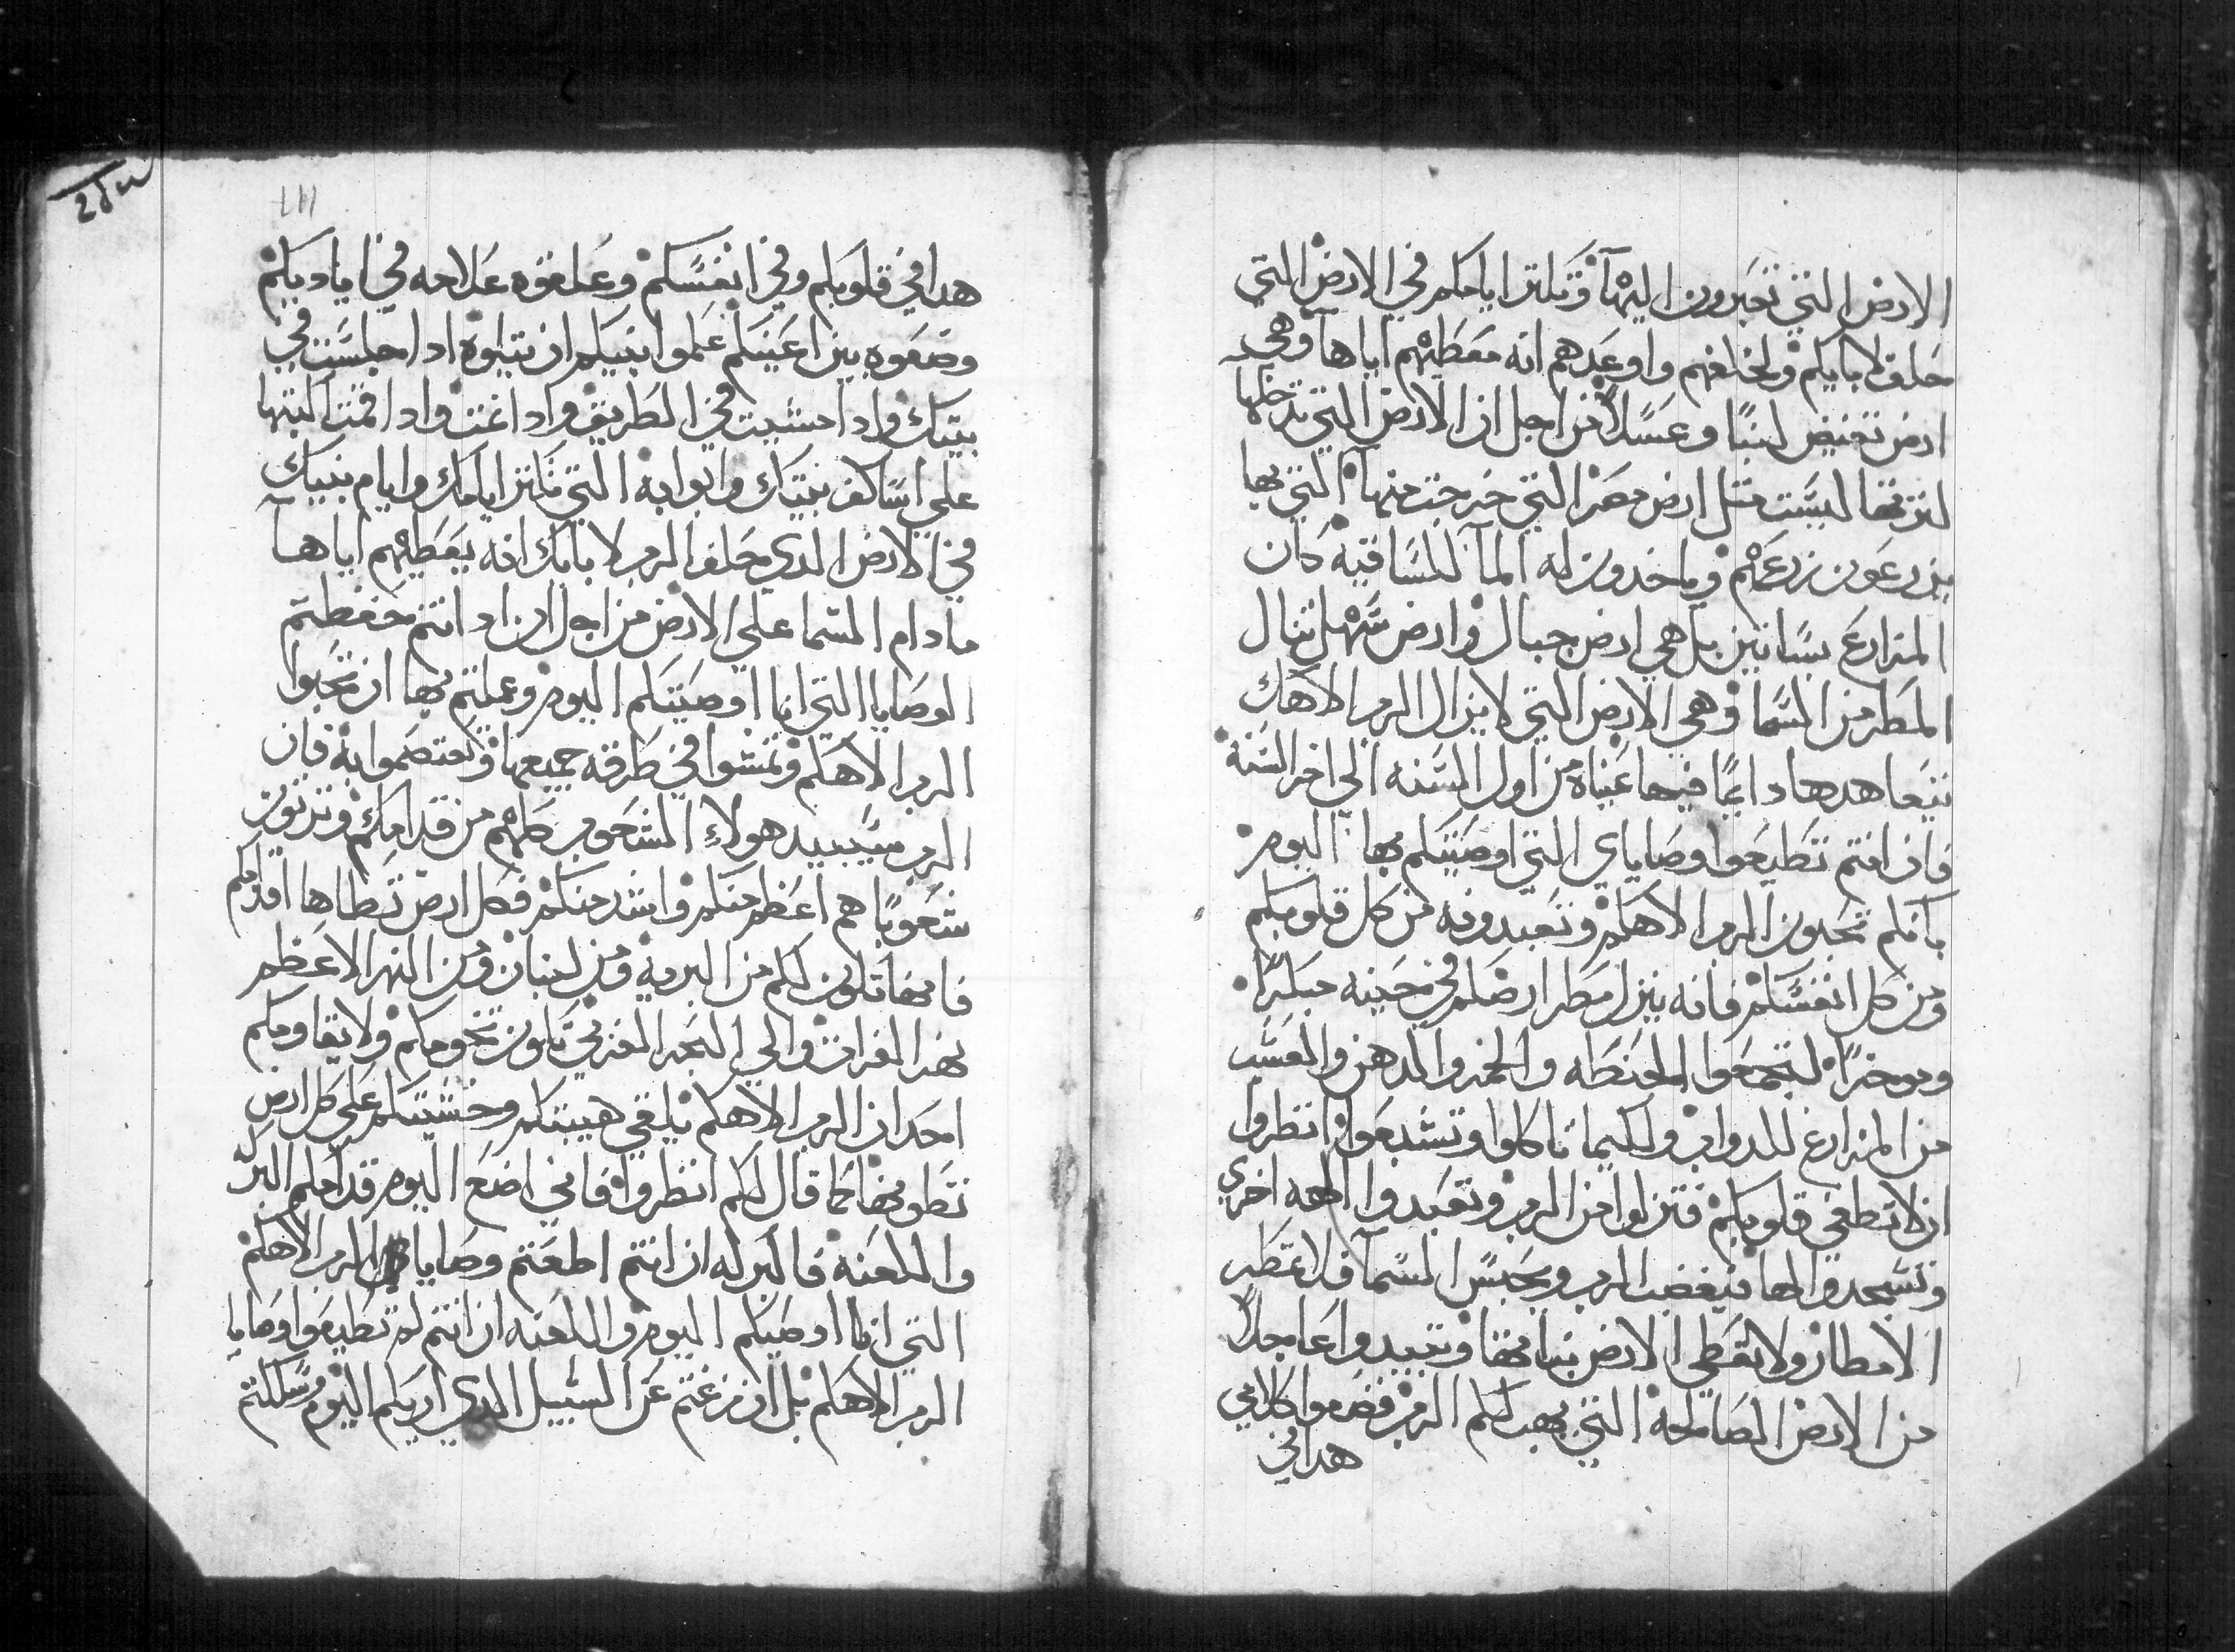 الارض التي تعبرون اليها وتكتر ايامكم في الارض التي
حلف لابايكم ولخلفهم واوعدهم انه معطيهم اياها وهي
ارض تفيض لبنًا وعسلاً من اجل ان الارض التي تدخلها
لترتها ليست مثل ارض مصر التي خرجت منها التي بها
يزرعون زرعهم وياخدون له الما للساقيه كان
المزارع بساتين بل هي ارض جبال وارض سهل تنال
المطر من السما وهي الارض التي لا يزال الرب الاهك
يتعاهدها دايمًا فيها عيناه من اول السنه الي اخر السنه
فان انتم تطيعوا وصاياي التي اوصيتكم بها اليوم
بانكم تحبون الرب الاهكم وتعبدونه من كل قلوبكم
ومن كل انفسكم فانه ينزل مطر ارضكم في حينه مبكرًا
وموخرًا لتجمعوا الحنطه والخمر والدهن والعشب
من المزارع للدواب ولكيما تاكلوا وتشبعوا انتظروا
ان لا تطغي قلوبكم فتزلوا من الرب وتعبدوا الهه اخري
وتسجدوا لها فيغضب الرب ويحبس السما فلا تمطر
الامطار ولا تعطي الارض نباتها وتبيدوا عاجلاً
من الارض الصالحه التي يهب لكم الرب فضعوا كلامي
هدا في
111
هدا في قلوبكم وفي انفسكم وعلقوه علامه في اياديكم
وضعوه بين اعينكم علموا بنيكم ان يتلوه ادا جلست في
بيتك وادا مشيت في الطريق وادا نمت وادا قمت اكتبها
علي اساكف بيتك وابوابه التي تكتر ايامك وايام بنيك
في الارض الدي حلف الرب لابايك انه يعطيهم اياها
مادام السما علي الارض من اجل ان ادا انتم حفظتم
الوصايا التي انا اوصيتكم اليوم وعملتم بها ان تحبوا
الرب الاهكم وتمشوا في طرقه جميعها وتعتصموا به فان
الرب سيبيد هولاءِ الشعوب كلهم من قدامكم وترتون
شعوبًا هم اعظم منكم واشد منكم فكل ارض تطاها اقدامكم
فانها تكون لكم من البريه ومن لبنان ومن النهر الاعظم
نهر الفرات والي البحر الغربي تكون تخومكم ولا يقاومكم
احد ان الرب الاهكم يلقي هيبتكم وخشيتكم علي كل ارض
تطونها كما قال لكم انظروا فاني اضع اليوم قدامكم البركه
واللعنه فالبركه ان انتم اطعتم وصايا الرب الاهكم
التي انا اوصيكم اليوم واللعنه ان انتم لم تطيعوا وصايا
الرب الاهكم بل ان زغتم عن السبيل الدي اريكم اليوم وسلكتم